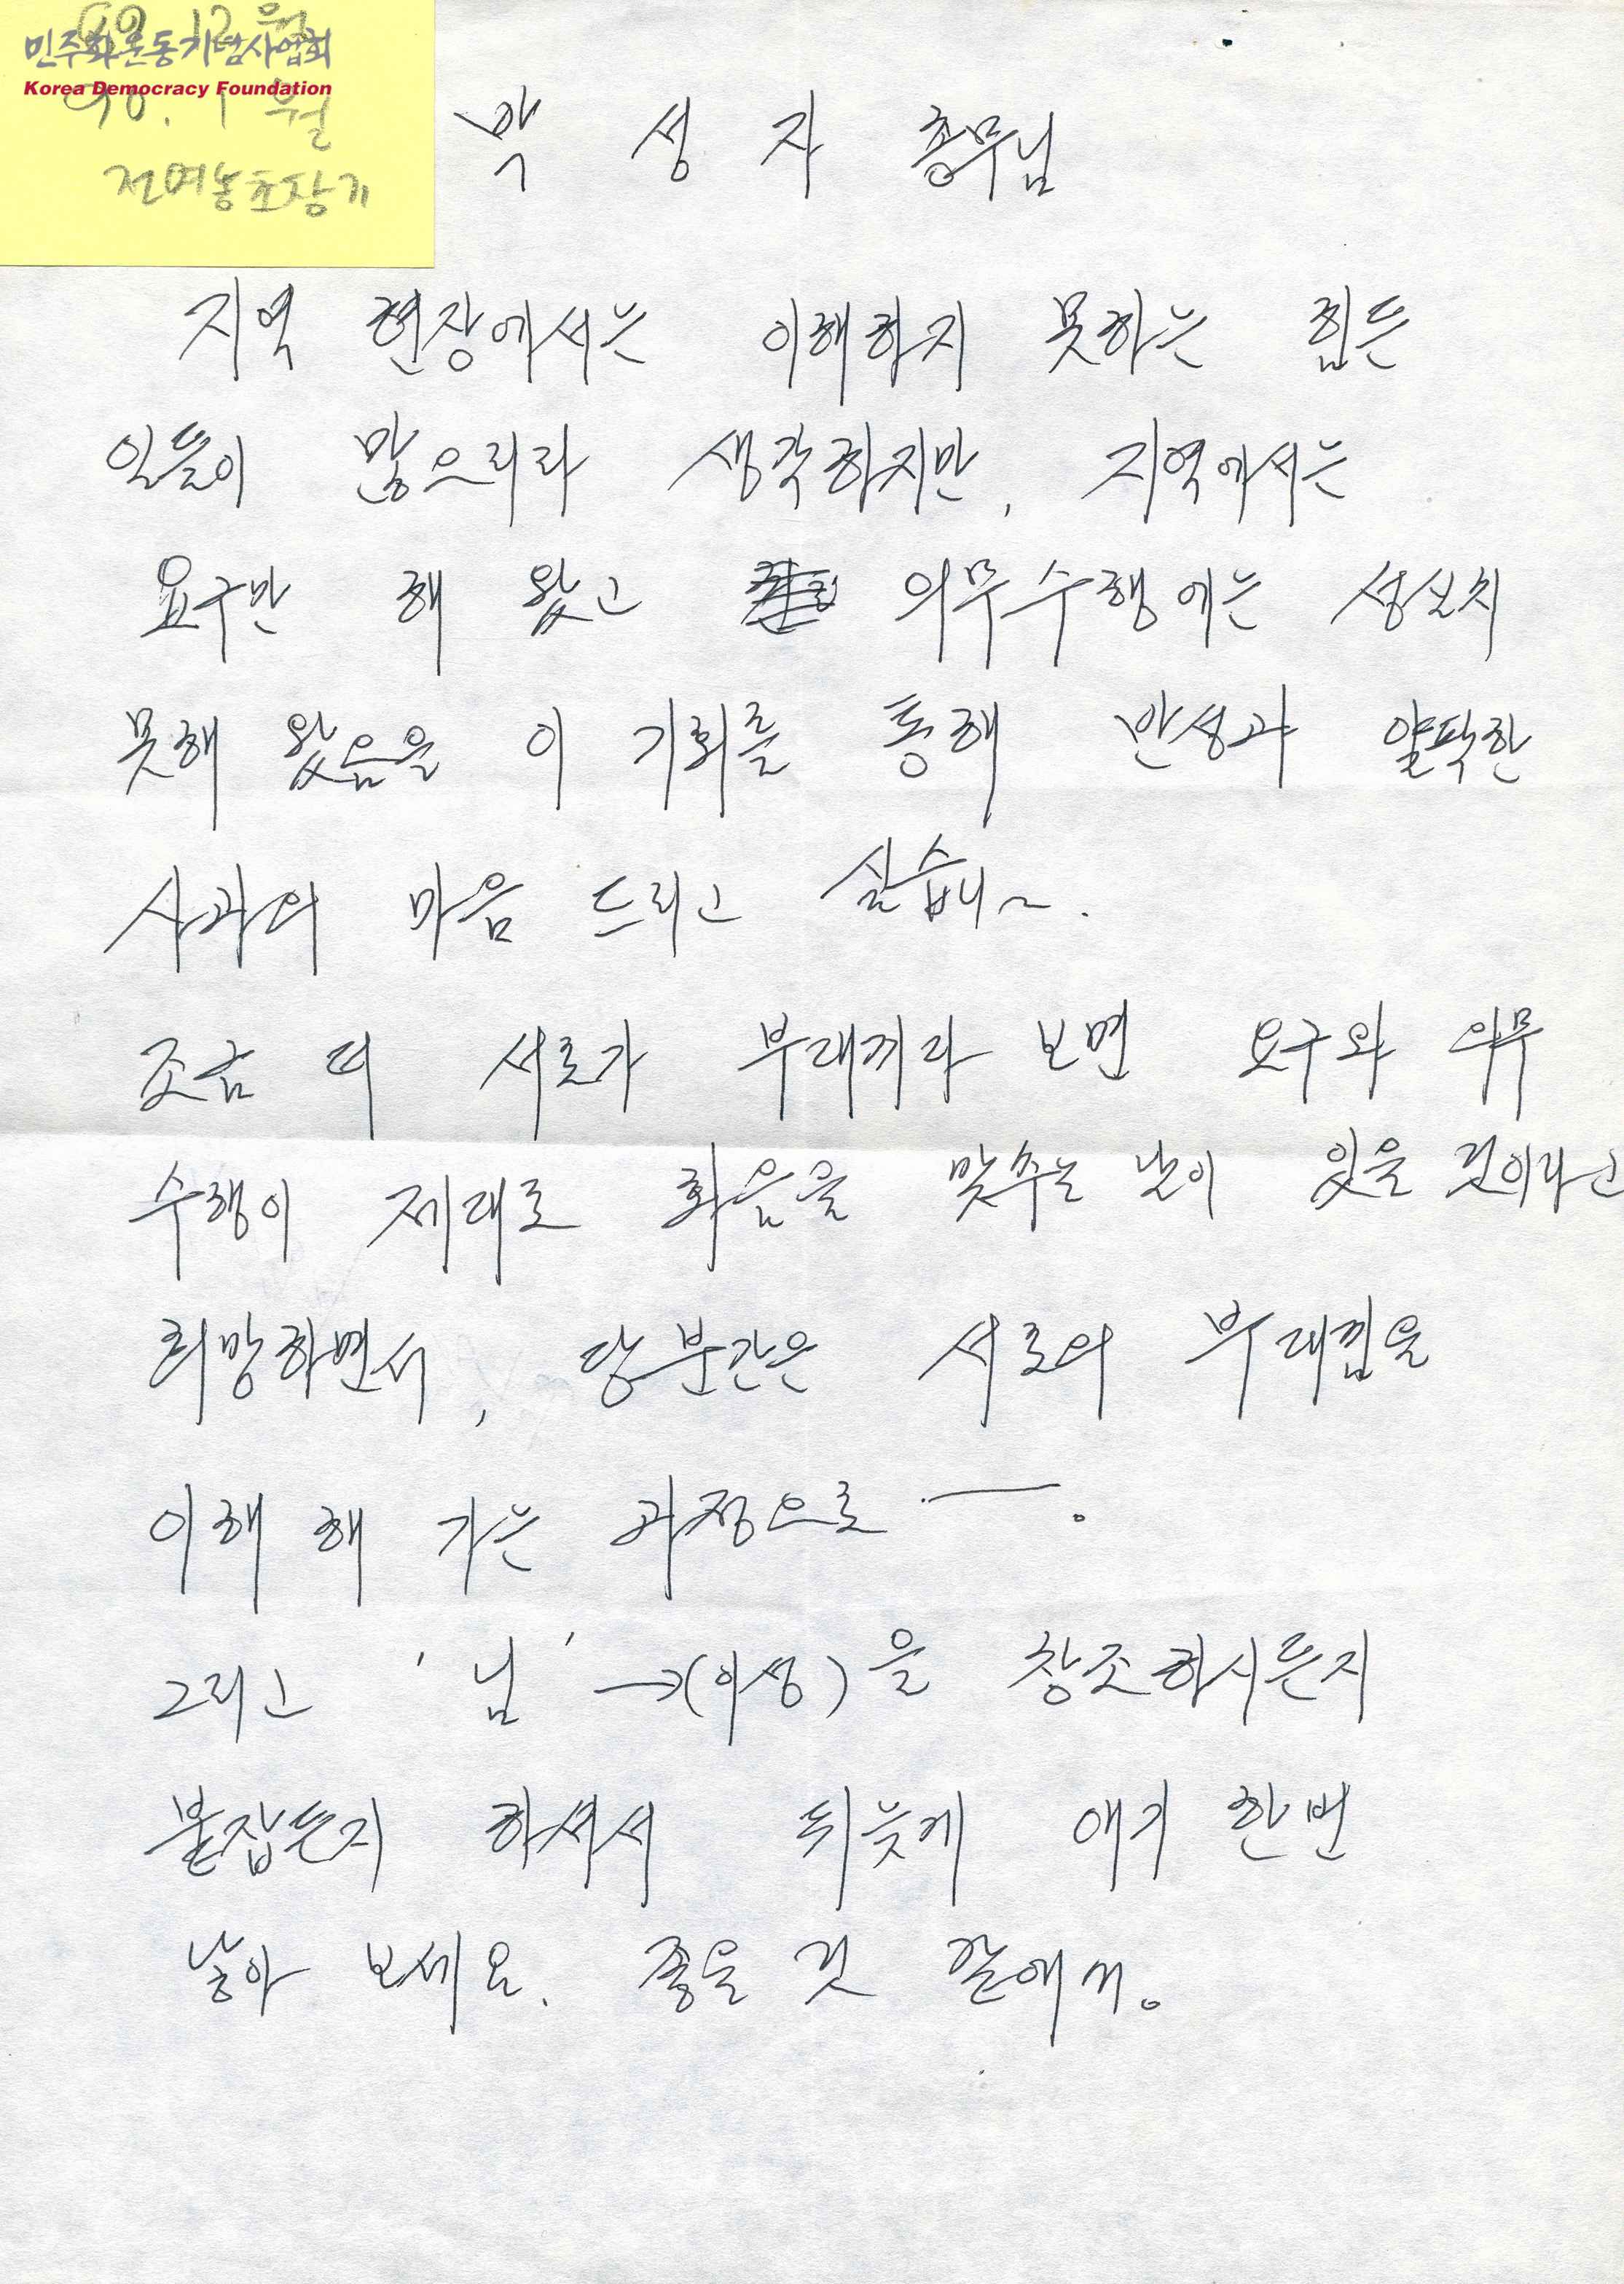 89. 12월
민주화운동기념사업회
Korea Democracy Foundation
90. 1월
전여농 초창기
박 성 자 총무님
지역 현장에서는 이해하지 못하는 힘든
일들이 많으리라 생각하지만, 지역에서는
요구만 해 왔고 의무수행에는 성실치
못해 왔음을 이 기회를 통해 반성과 얄팍한
사과의 마음 드리고 싶습니~.
조금 더 서로가 부대끼다 보면 요구와 의무
수행이 제대로 화음을 맞추는 날이 있을 것이라고
희망하면서, 당분간은 서로의 부대낌을
이해 해 가는 과정으로 —.
그리고 '님' →(이성)을 창조하시든지
붙잡든지 하셔서 뒤늦게 애기 한번
낳아 보세요. 좋을 것 같애예.